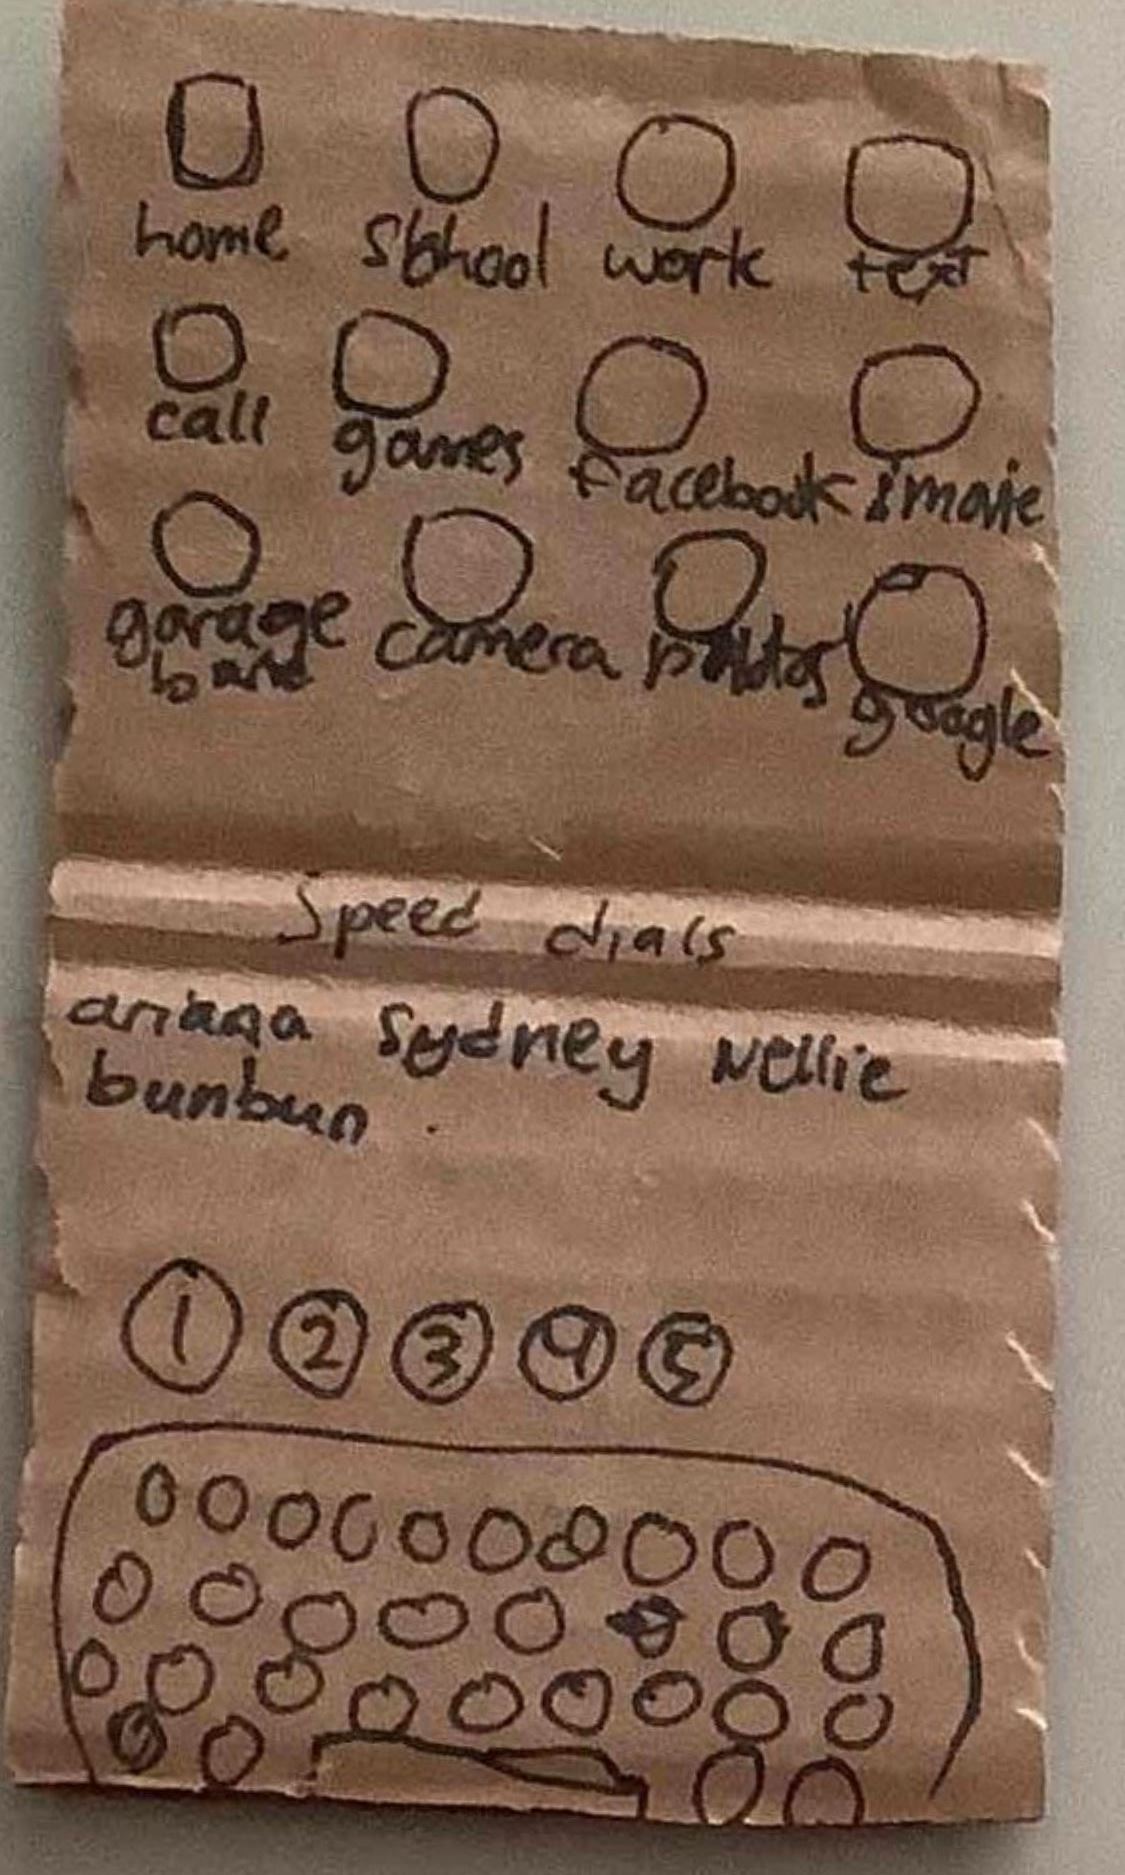 home school work text
call games facebook imovie
garage camera photos google
band
Speed dials
ariana Sydney Nellie
bunbun
1 2 3 4 5